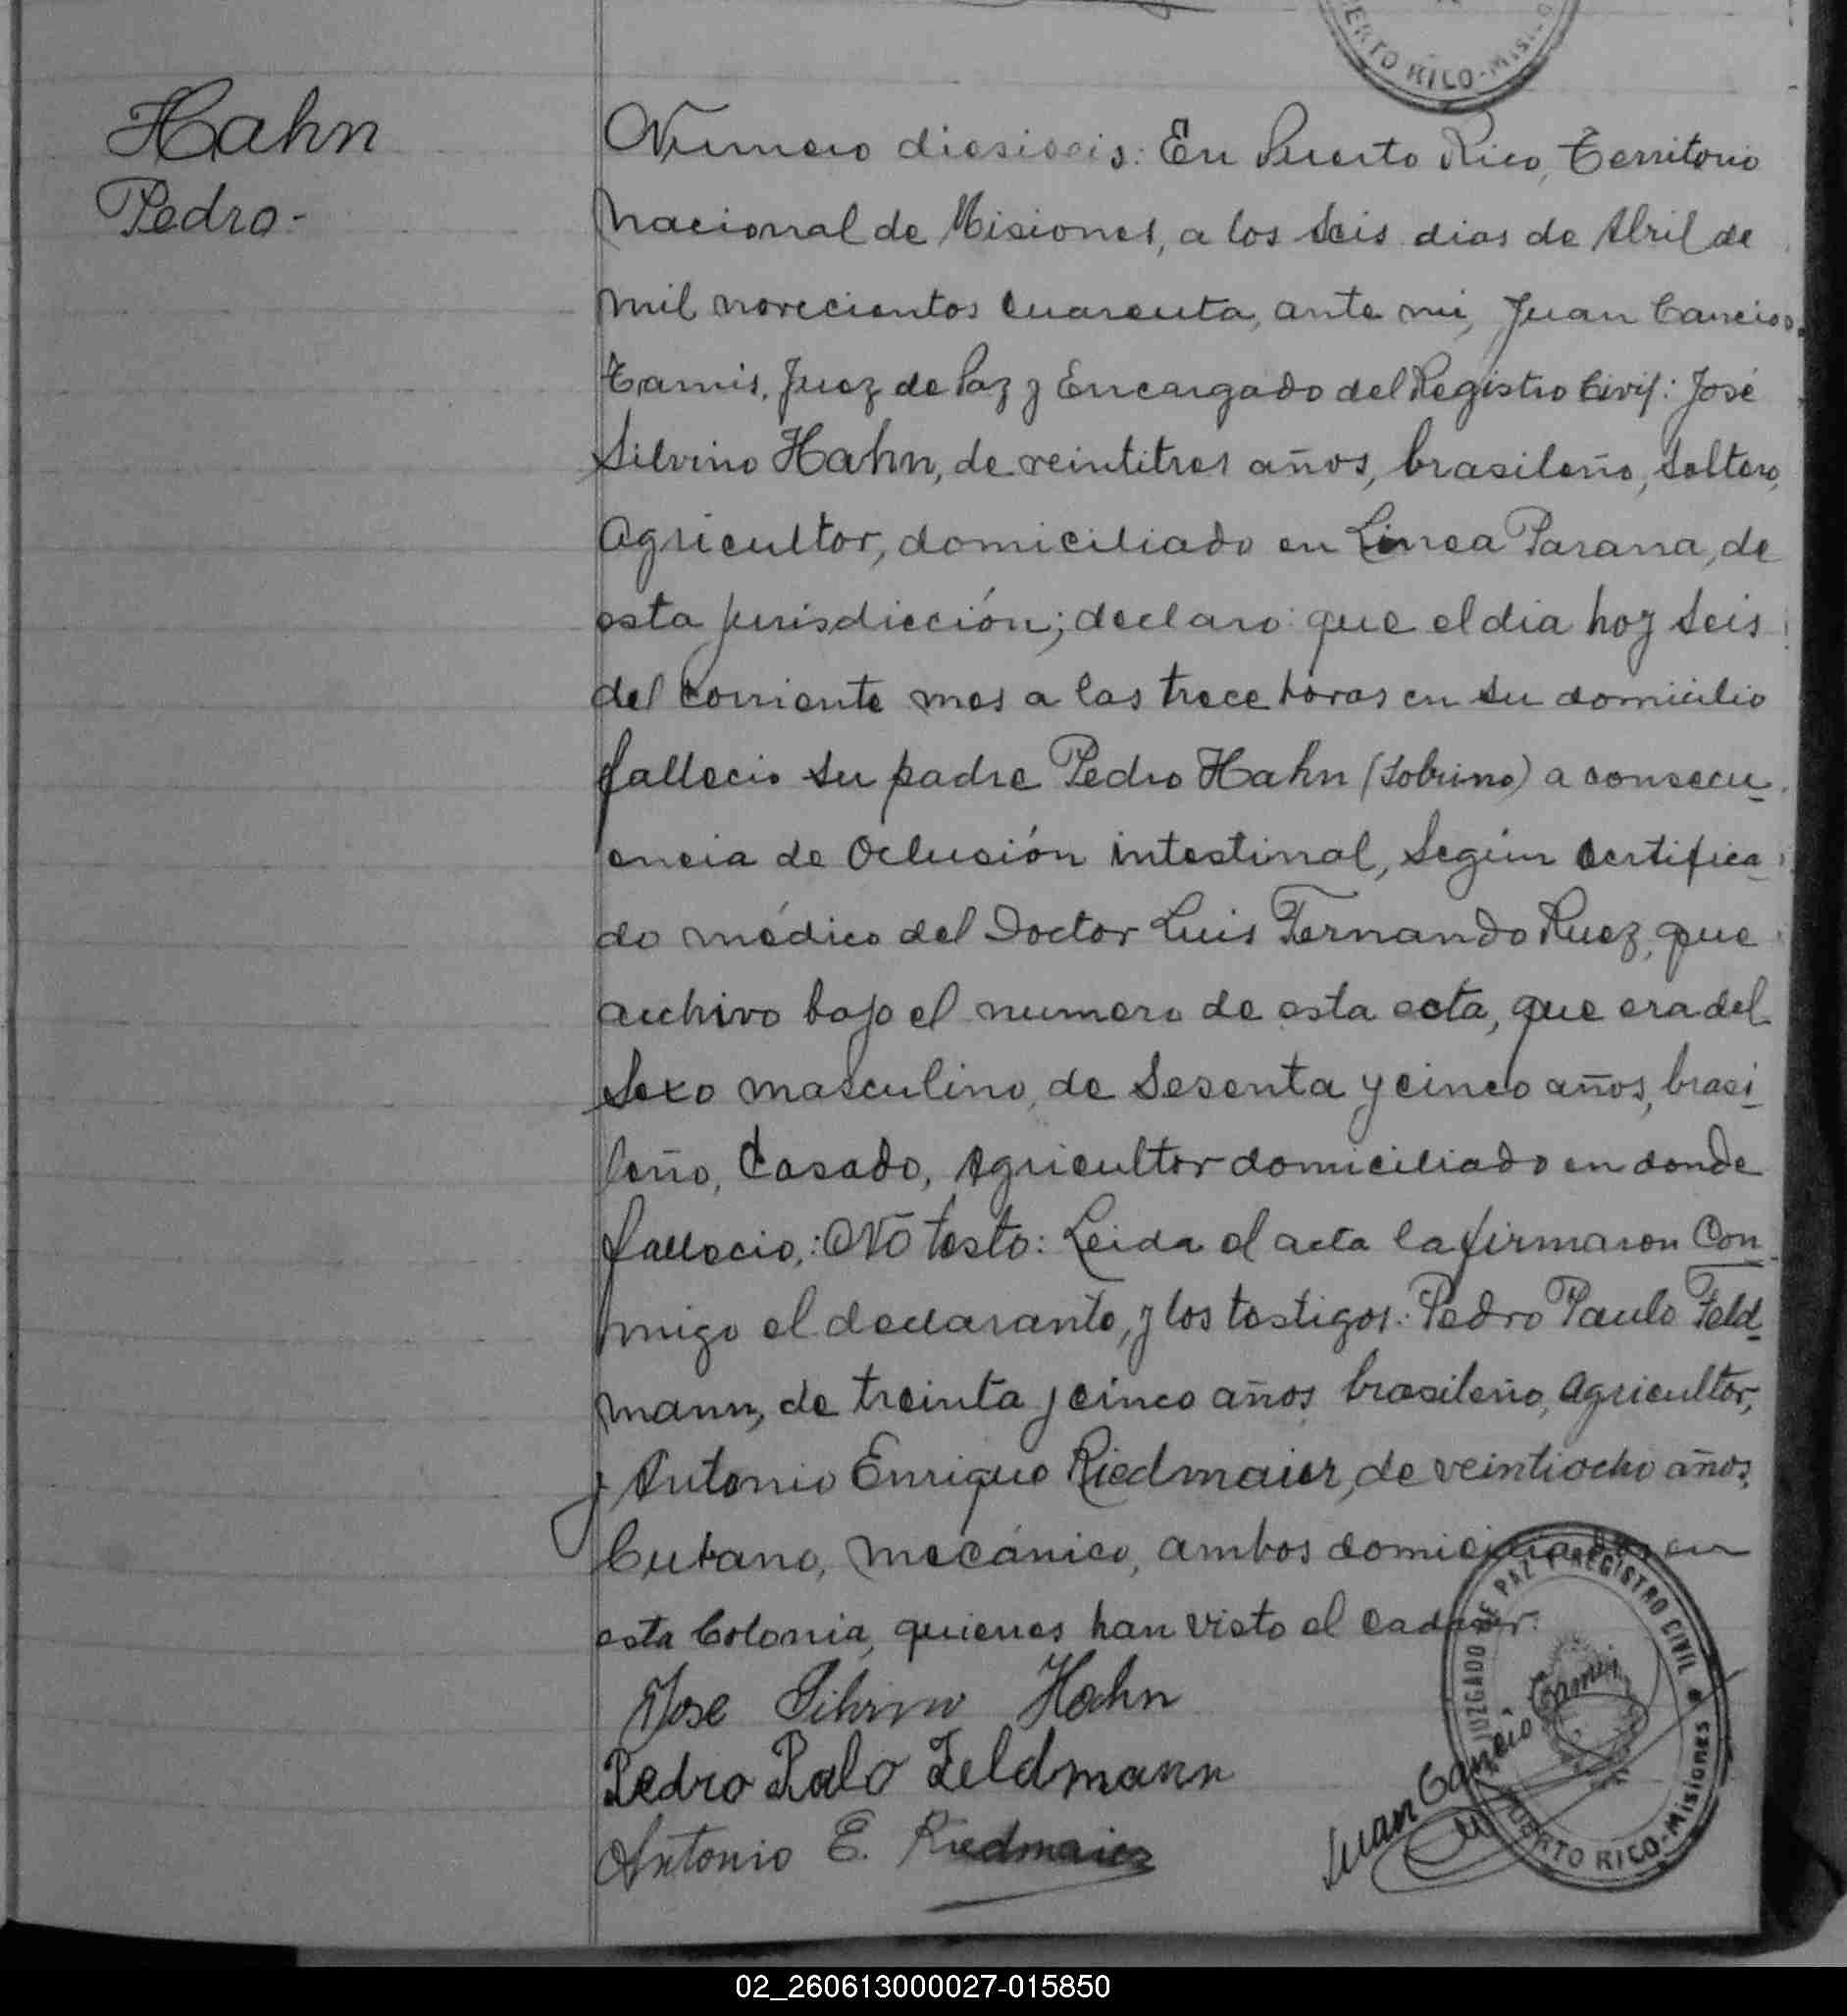 PUERTO RICO-MISIO
Hahn
Pedro-
Numero diesiseis: En Puerto Rico, Territorio
Nacional de Misiones, a los seis dias de Abril de
mil novecientos cuarenta, ante mi, Juan Cancio
Tamis, Juez de Paz y Encargado del Registro Civil: José
Silvino Hahn, de veintitres años, brasileño, soltero,
Agricultor, domiciliado en Linea Parana, de
esta jurisdicción; declaro: que el dia hoy seis
del corriente mes a las trece horas en su domicilio
fallecio su padre Pedro Hahn (sobrino) a consecu-
encia de Oclusión intestinal, según certifica-
do médico del Doctor Luis Fernando Ruez, que
archivo bajo el numero de esta acta, que era del
sexo masculino, de sesenta y cinco años, brasi-
leño, Casado, Agricultor domiciliado en donde
fallecio,: No testo: Leida el acta la firmaron Con-
migo el declarante, y los testigos: Pedro Paulo Feld-
mann, de treinta y cinco años, brasileño, Agricultor,
y Antonio Enrique Riedmaier, de veintiocho años,
Cubano, mecánico, ambos domiciliados en
esta Colonia, quienes han visto el cadaver.
Jose Silvino Hahn
Pedro Palo Feldmann
Antonio E. Riedmaier
Juan Cancio Tamis
JUZGADO DE PAZ Y REGISTRO CIVIL
PUERTO RICO-Misiones
02_260613000027-015850